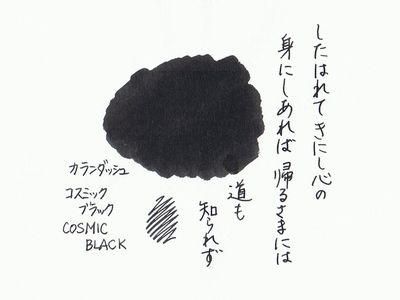 したはれてきにし心の
身にしあれば帰るさまには
道も
知られず
カランダッシュ
コスミック
ブラック
COSMIC
BLACK